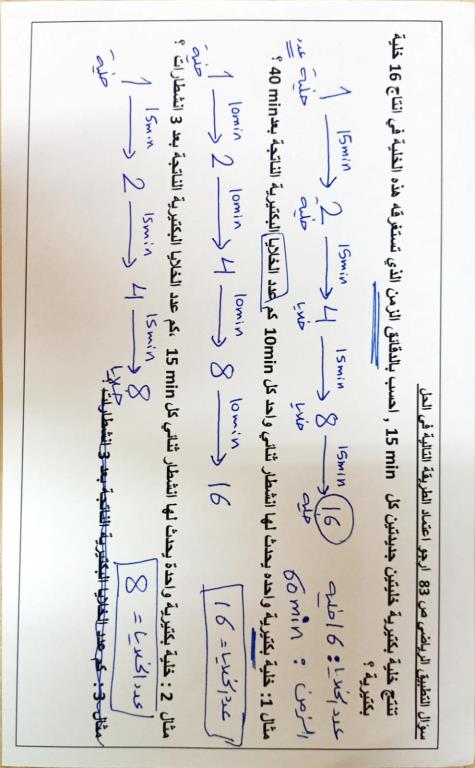 سؤال التطبيق الرياضي ص 83 ارجو اعتماد الطريقة التالية في الحل
تنتج خلية بكتيرية خليتين جديدتين كل 15 min , احسب بالدقائق الزمن الذي تستغرقه هذه الخلية في انتاج 16 خلية
بكتيرية ؟
1 15min → 2 15min → 4 15min → 8 15min → 16
خلية عدد خلية خلايا خلايا خلية
عدد الخلايا : 16 خلية
الزمن : 60 min
مثال 1: خلية بكتيرية واحده يحدث لها انشطار ثنائي واحد كل 10min كم عدد الخلايا البكتيرية الناتجة بعد 40 min ؟
1 10min → 2 10min → 4 10min → 8 10min → 16
خلية
عدد الخلايا = 16
مثال 2 : خلية بكتيرية واحدة يحدث لها انشطار ثنائي كل 15 min ،كم عدد الخلايا البكتيرية الناتجة بعد 3 انشطارات ؟
1 15min → 2 15min → 4 15min → 8
خلية خلايا
عدد الخلايا = 8
مثال 3 : كم عدد الخلايا البكتيرية الناتجة بعد 3 انشطارات ؟